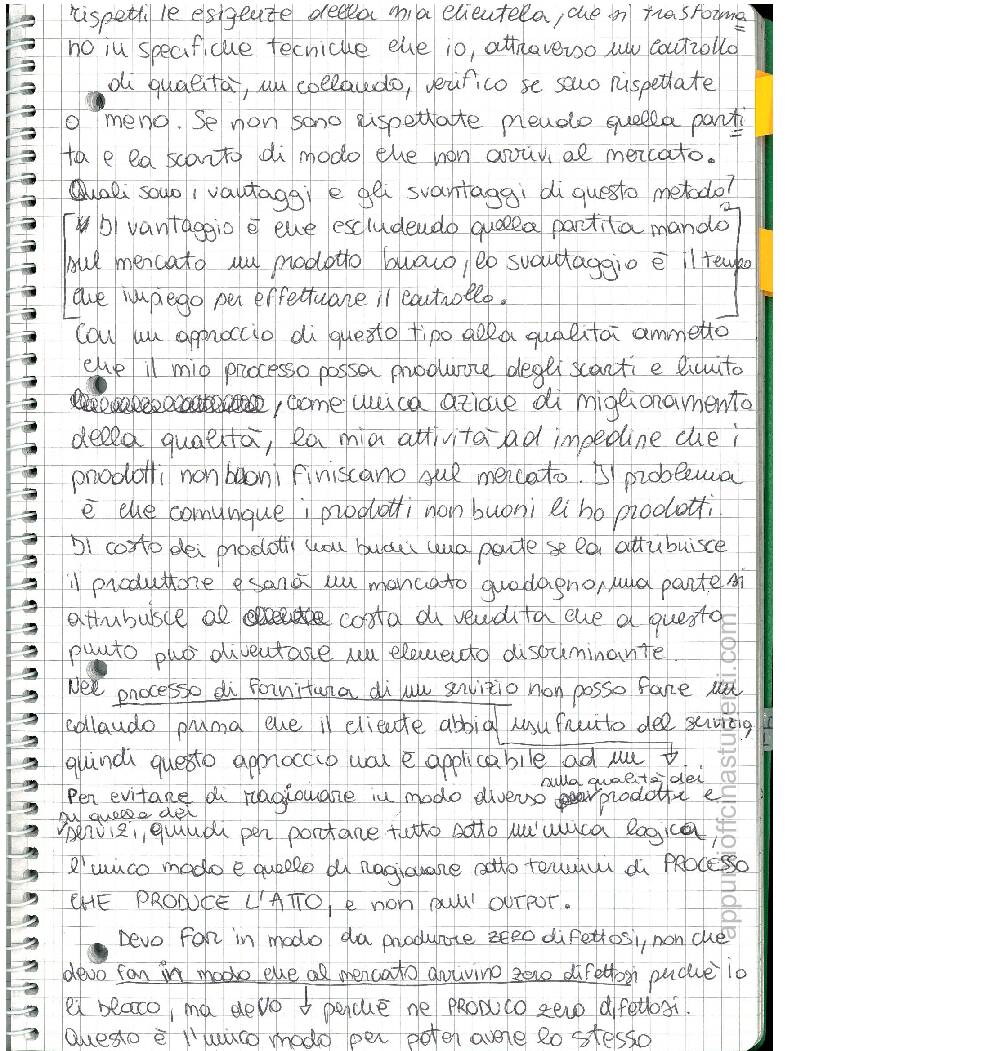 rispetti le esigenze della mia clientela, che si trasforma
no in specifiche tecniche che io, attraverso un controllo
di qualità, un collaudo, verifico se sono rispettate
o meno. Se non sono rispettate prendo quella parti
ta e la scarto di modo che non arrivi al mercato.
Quali sono i vantaggi e gli svantaggi di questo metodo?
Il vantaggio è che escludendo quella partita mando
sul mercato un prodotto buono, lo svantaggio è il tempo
che impiego per effettuare il controllo.
Con un approccio di questo tipo alla qualità ammetto
che il mio processo possa produrre degli scarti e limito
, come unica azione di miglioramento
della qualità, la mia attività ad impedire che i
prodotti non buoni finiscano sul mercato. Il problema
è che comunque i prodotti non buoni li ho prodotti.
Il costo dei prodotti non buoni una parte se la attribuisce
il produttore e sarà un mancato guadagno, una parte si
attribuisce al costo di vendita che a questo
punto può diventare un elemento discriminante.
Nel processo di fornitura di un servizio non posso fare un
collaudo prima che il cliente abbia usufruito del servizio,
quindi questo approccio non è applicabile ad un ↓.
Per evitare di ragionare in modo diverso sulla qualità dei prodotti e
su quella dei servizi, quindi per portare tutto sotto un'unica logica,
l'unico modo è quello di ragionare sotto termini di PROCESSO
CHE PRODUCE L'ATTO, e non sull' OUTPUT.
Devo far in modo da produrre ZERO difettosi, non che
devo far in modo che al mercato arrivino zero difettosi perchè io
li blocco, ma devo ↓ perchè ne PRODUCO zero difettosi.
Questo è l'unico modo per poter avere lo stesso
appuntiofficinastudenti.com